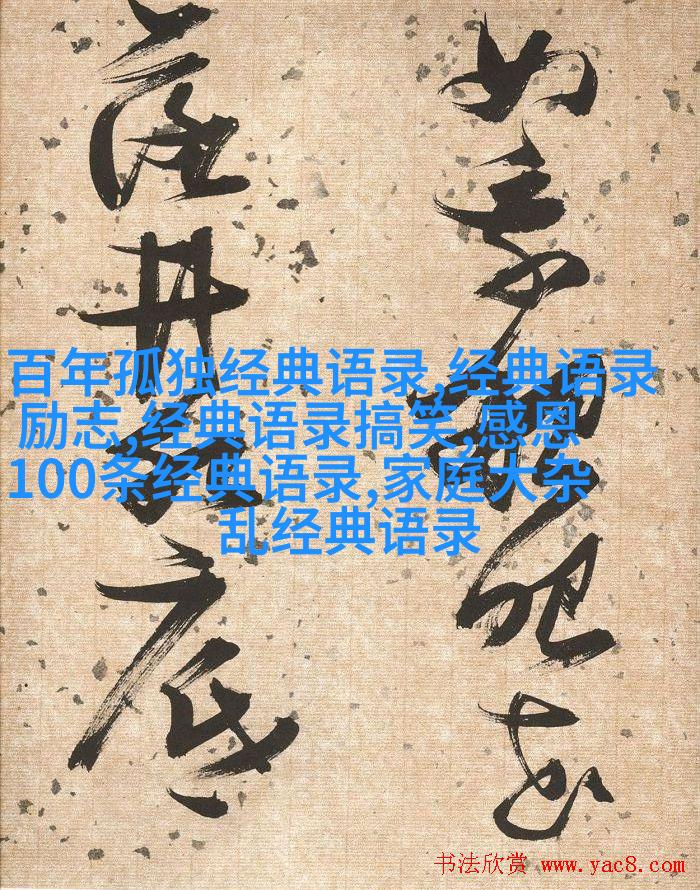 如
井底
百年孤独经典语录,经典语录
励志,经典语录搞笑,感恩
100条经典语录,家庭大杂
乱经典语录
书法欣赏 www.yac8.com